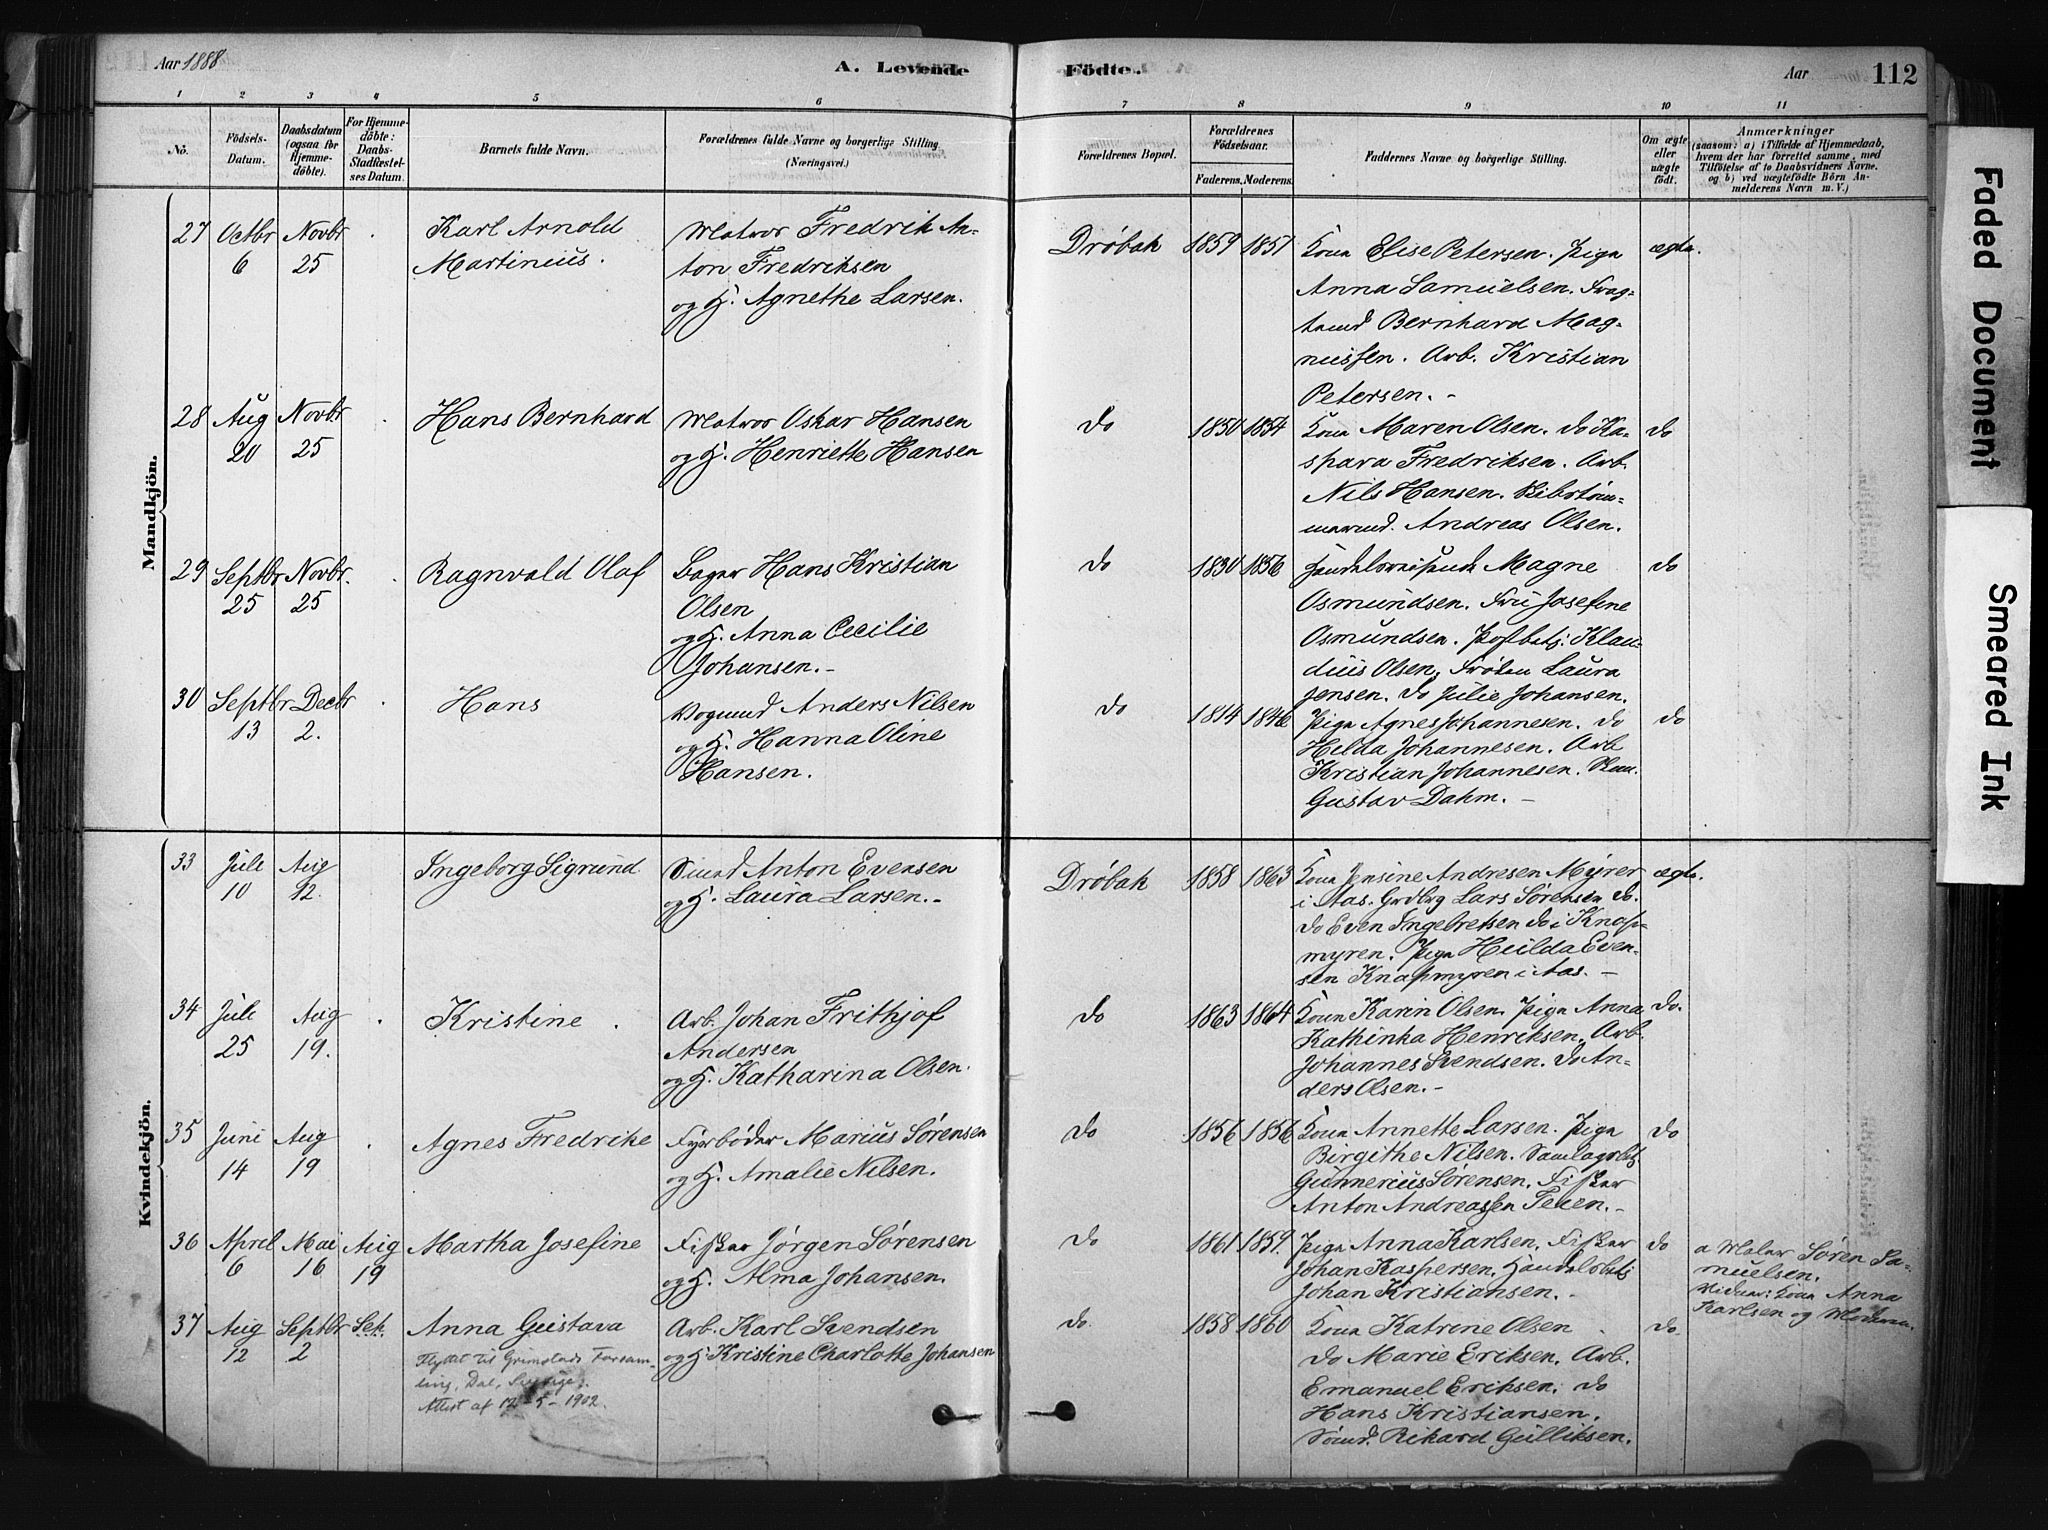 Aar 1888
A. Levende
Födte.
Aar
112
1 2 3 4 5 6 7 8 9 10 11
No.
Födsels-
Datum.
Daabsdatum
(ogsaa for
Hjemme-
döbte).
For Hjemme-
döbte:
Daabs-
Stadfæstel-
ses Datum.
Barnets fulde Navn.
Forældrenes fulde Navne og borgerlige Stilling.
(Næringsvei.)
Forældrenes Bopæl.
Forældrenes
Födselsaar.
Faderens. Moderens.
Faddernes Navne og borgerlige Stilling.
Om ægte
eller
uægte
født.
Anmærkninger
(saasom: a) i Tilfælde af Hjemmedaab,
hvem der har forrettet samme, med
Tilföielse af to Daabsvidners Navne.
og b) ved uægtefödte Börn An-
melderens Navn m. V.)
Mandkjön.
27 Octbr 6 Novbr 25
Karl Arnold
Martinius.
Matros Fredrik An-
ton Fredriksen
og H. Agnethe Larsen.
Drøbak 1859 1857
Kona Elise Petersen. Piga
Anna Samuelsen.
Bernhard Mag-
nussen. Arb. Kristian
Petersen. -
ægte.
28 Aug 20 Novbr 25
Hans Bernhard
Matros Oskar Hansen
og H. Henriette Hansen
do 1850 1854
Kona Maren Olsen. do Ka-
spara Fredriksen. Arb.
Nils Hansen. Skibstøm-
mermd. Andreas Olsen.
do
29 Septbr 25 Novbr. 25
Ragnvald Olaf
Bager Hans Kristian
Olsen
og H. Anna Cecilie
Johansen. -
do 1830 1856
Magne
Osmundsen. Fru Josefine
Osmundsen. Postbetj. Klau-
dius Olsen. Frøken Laura
Jensen. do Julie Johansen.
do
30 Septbr 13 Decbr 2.
Hans
Vognmd Anders Nilsen
og H. Hanna Oline
Hansen.
do 1814 1846
Piga Agnes Johannesen. do
Hilda Johannesen. Arb
Kristian Johannesen.
Gustav Dahm. -
do
Kvindekjön.
33 Juli 10 Aug 12.
Ingeborg Sigrund
Smed Anton Evensen
og H. Laura Larsen. -
Drøbak 1858 1863
Kona Jensine Andresen Myrer
i Aas. Grdbrg Lars Sørensen do.
do Even Ingebretsen do i Knap-
myren. Piga Hulda Even-
sen Knapmyren i Aas. -
ægte.
34 Juli 25 Aug 19.
Kristine.
Arb. Johan Frithjof
Andersen
og H. Katharina Olsen.
do 1863 1864
Kona Karin Olsen. Piga Anna
Kathinka Henriksen. Arb.
Johannes Svendsen. do An-
ders Olsen. -
do.
35 Juni 14 Aug 19
Agnes Fredrike
Fyrbøder Marius Sørensen
og H. Amalie Nilsen.
do 1856 1856
Kona Annette Larsen. Piga
Birgithe Nilsen. Samlagsbst.
Gunnerius Sørensen. Fisker
Anton Andreassen Teien. -
do
36 April 6 Mai 16 Aug 19
Martha Josefine
Fisker Jørgen Sørensen
og H. Alma Johansen.
do 1861 1859.
Piga Anna Karlsen. Fisker
Johan Kaspersen. Handelsbetj
Johan Kristiansen. -
do
a Maler Søren Sa-
muelsen.
Vidner: Kona Anna
Karlsen og Moderen.
37 Aug 12 Septbr 2 Set.
Anna Gustava
Flyttet til Grimstads Forsam-
ling, Dal, Sverige.
Attest af 12-5-1902.
Arb. Karl Svendsen
og H. Kristine Charlotte Johansen
do. 1858 1860
Kona Katrine Olsen
do Marie Eriksen. Arb.
Emanuel Eriksen. do
Hans Kristiansen.
Sømd. Rikard Gulliksen.
do.
Faded Document
Smeared Ink